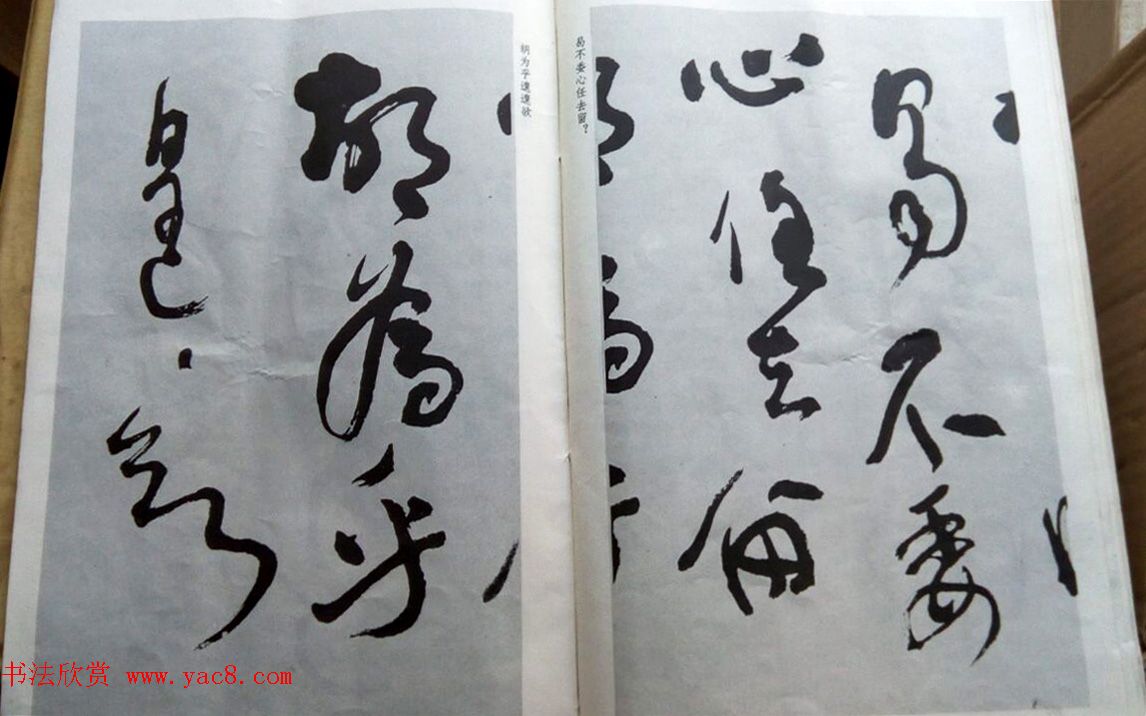 曷不委
心任去留
曷不委心任去留？
胡为乎遑遑欲
胡為乎
遑遑欲
书法欣赏 www.yac8.com